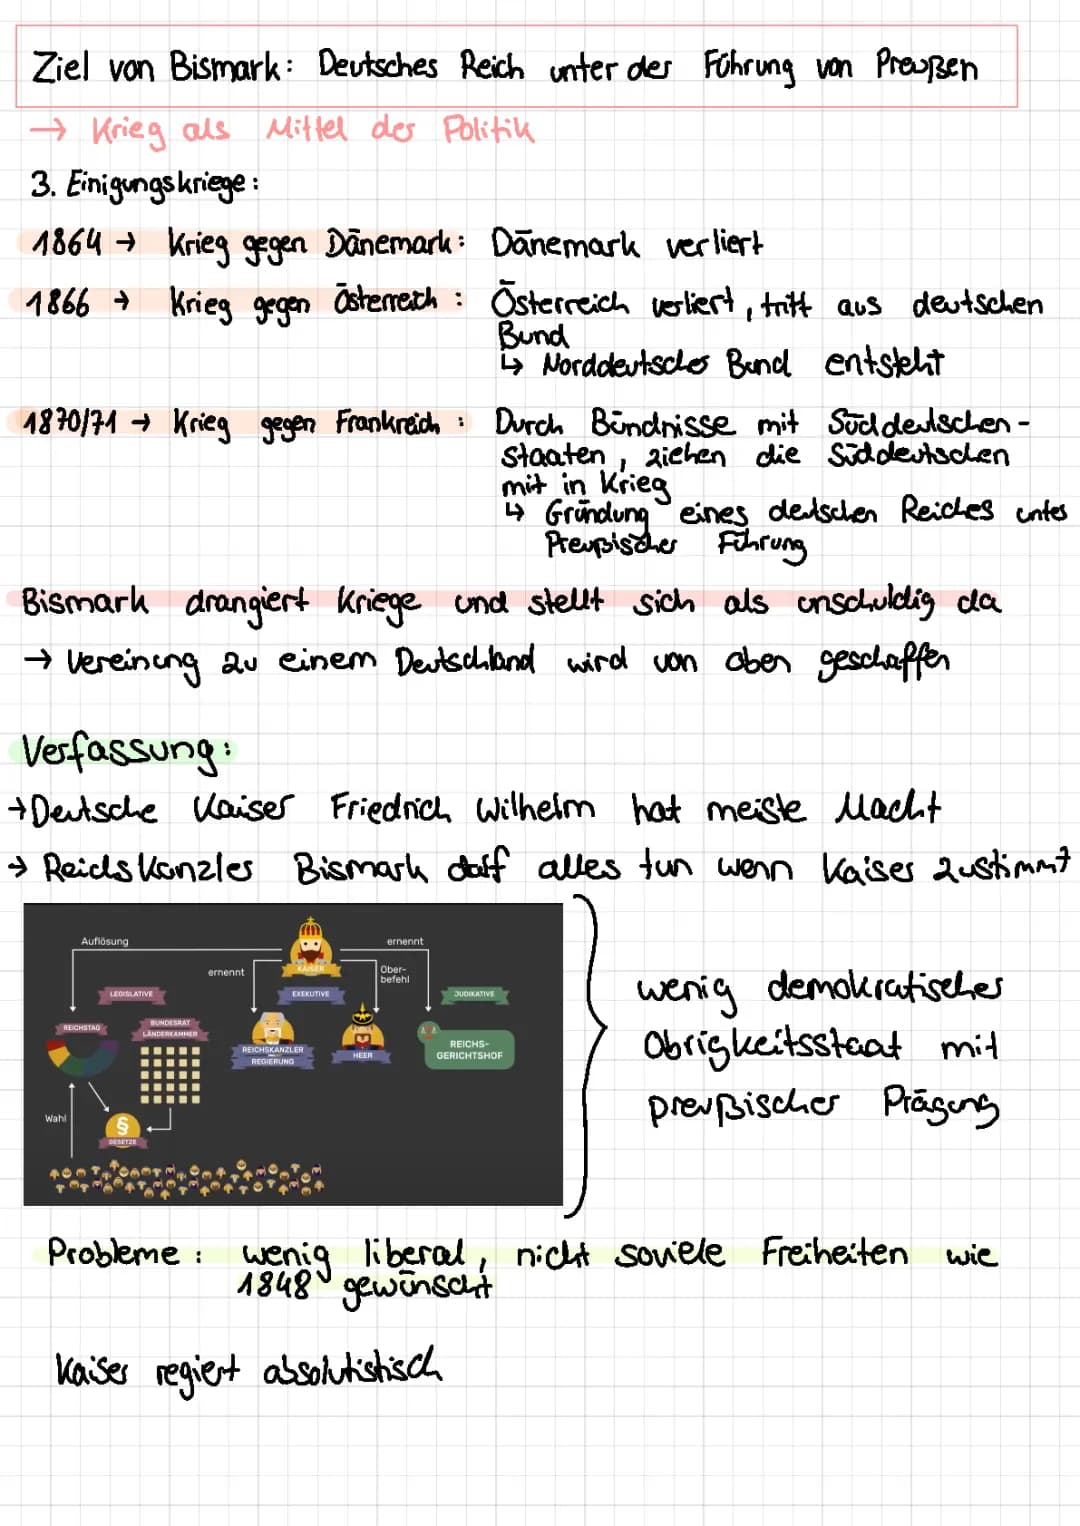 Ziel von Bismark: Deutsches Reich unter der Führung von Preußen
→ Krieg als Mittel der Politik
3. Einigungskriege:
1864 → Krieg gegen Dänemark: Dänemark verliert
1866 → Krieg gegen Österreich: Österreich verliert, tritt aus deutschen
Bund
↳ Norddeutscher Bund entsteht
1870/71 → Krieg gegen Frankreich: Durch Bündnisse mit Süddeutschen-
staaten, ziehen die Süddeutschen
mit in Krieg
↳ Gründung eines deutschen Reiches unter
Preußischer Führung
Bismark drangiert Kriege und stellt sich als unschuldig da
→ Vereinung zu einem Deutschland wird von oben geschaffen
Verfassung:
→ Deutsche Kaiser Friedrich Wilhelm hat meiste Macht
→ Reichskanzler Bismark daff alles tun wenn Kaiser zustimmt
Auflösung
ernennt
KAISER
ernennt
Ober-
befehl
LEGISLATIVE
EXEKUTIVE
JUDIKATIVE
REICHSTAG
BUNDESRAT
LÄNDERKAMMER
REICHSKANZLER
REGIERUNG
HEER
REICHS-
GERICHTSHOF
Wahl
§
GESETZE
wenig demokratischer
Obrigkeitsstaat mit
preußischer Prägung
Probleme: wenig liberal, nicht soviele Freiheiten wie
1848 gewünscht
Kaiser regiert absolutistisch